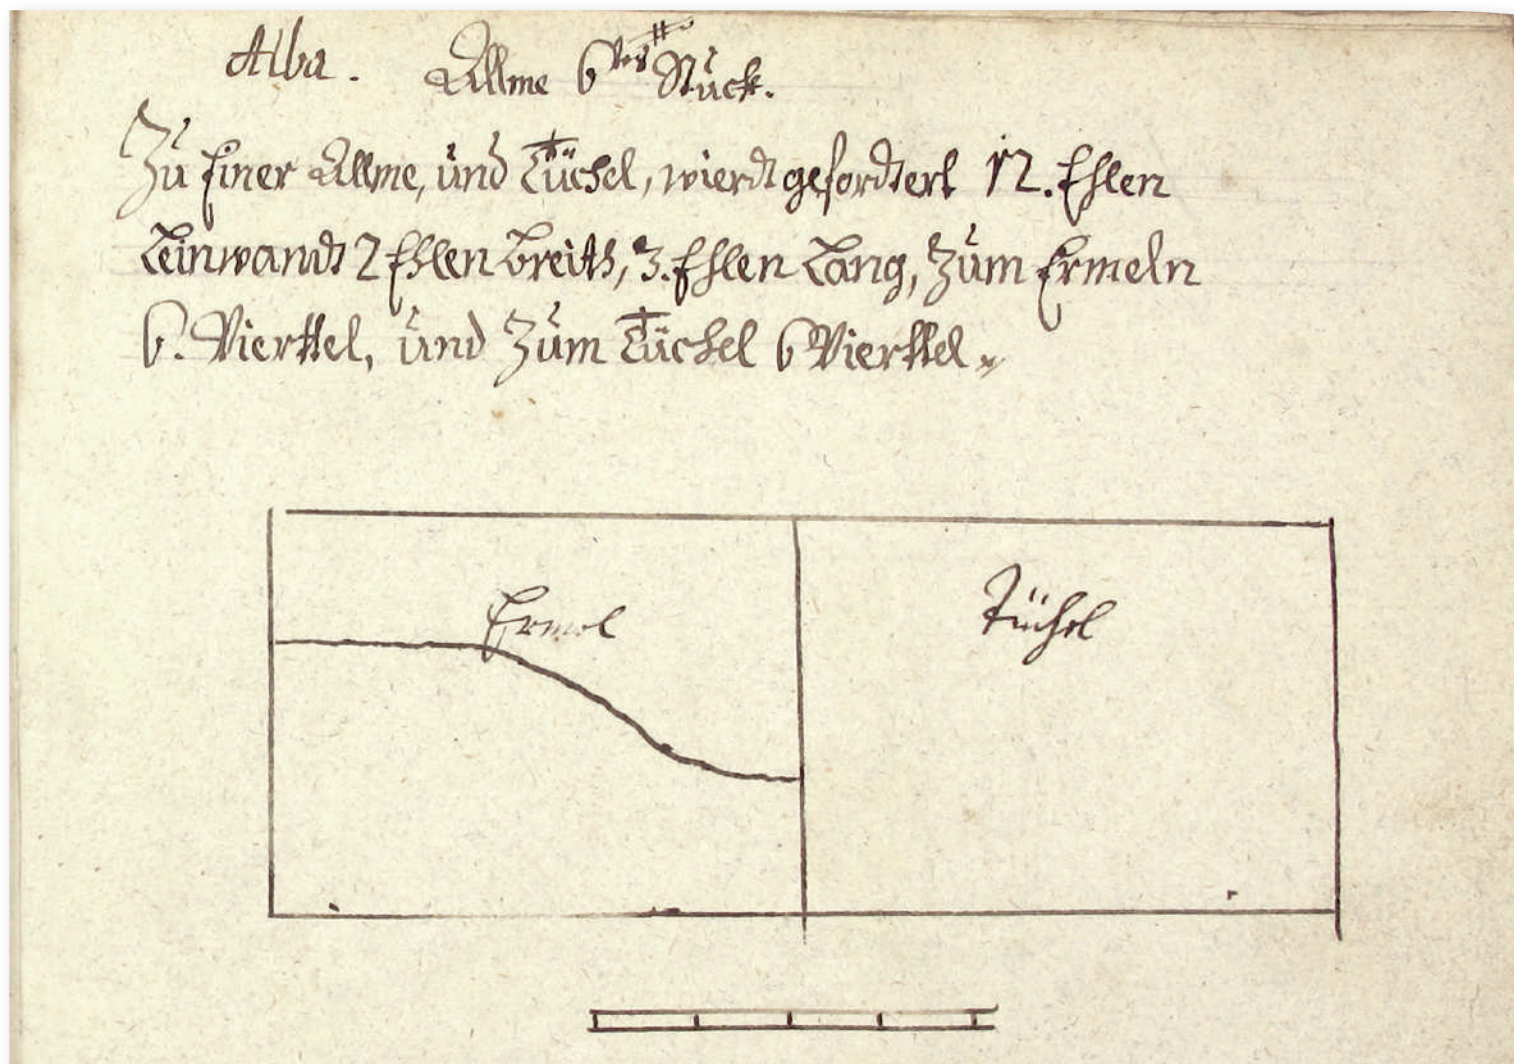 Alba. Allme 6tes Stuck.
Zu Einer Allme, und Tüchel, wierdt gefordtert 12. Ehlen
Leinwandt 2 Ehlen breith, 3. Ehlen Lang, Zum Ermeln
6. Vierttel, und Zum Tüchel 6 Vierttel
Ermel
Tüchel